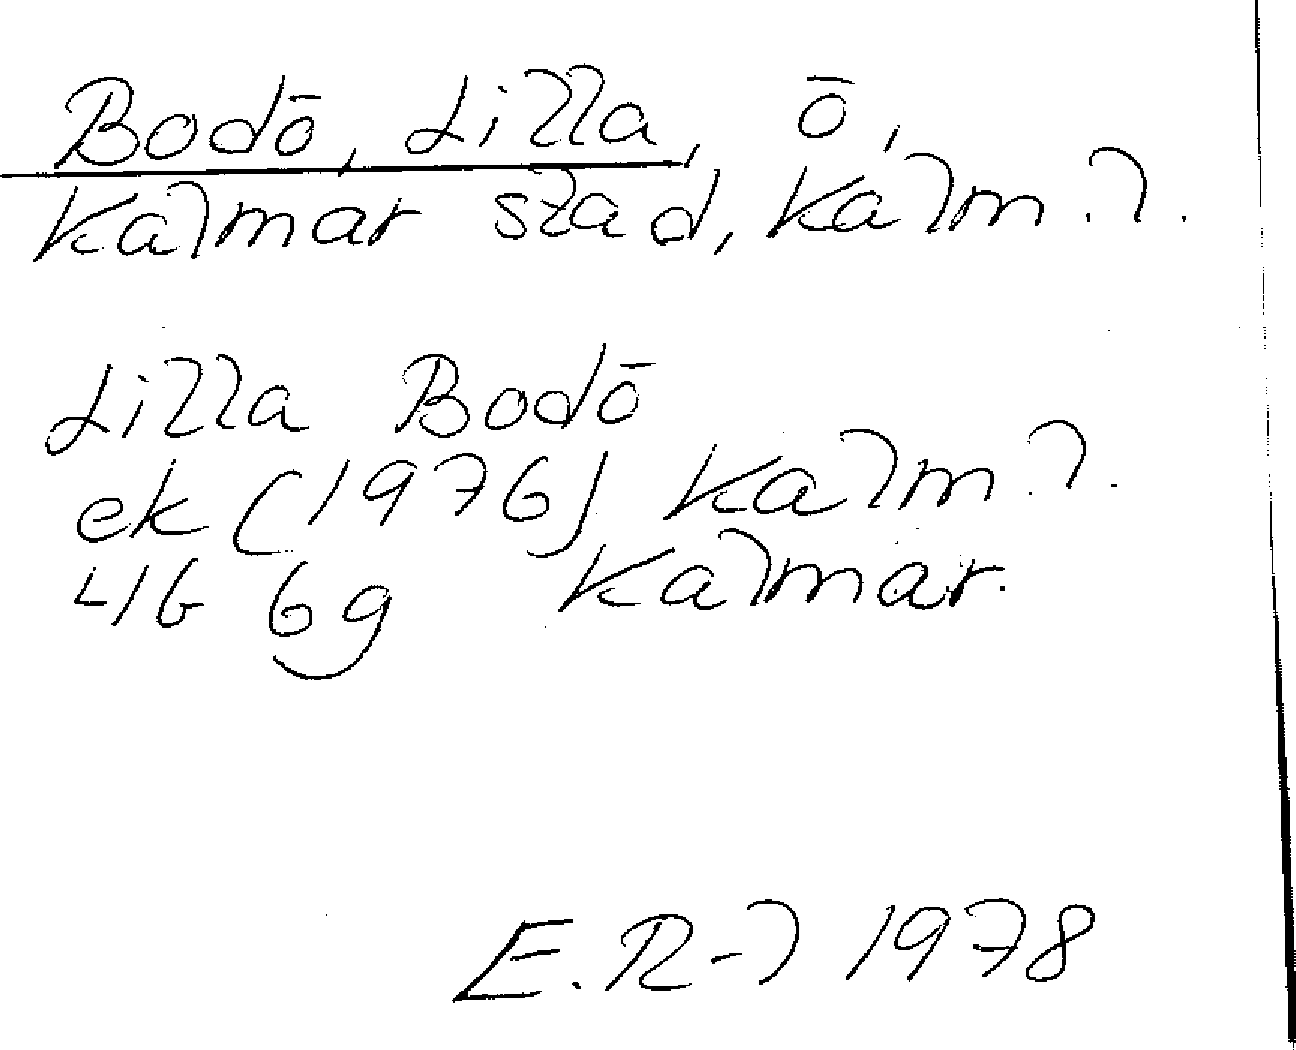 Bodō, Lilla, ō,
Kalmar stad, Kalm. l.
Lilla Bodō
ek (1976) Kalm. l.
4G 6g Kalmar.
E.R-l 1978